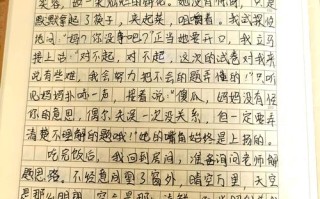 笑容,如一束照亮的鲜花。她没有询问,只是
默默拿起了筷子,夹起菜,咀嚼着。我试探性
地问:“妈?你没事吧?”正当她要开口,我立马
接上话:“对不起,对不起,这次的试卷对我来
说有些难,我会努力把不会的题弄懂的!”只听
见妈妈扑哧一声,接着说:“傻瓜,妈妈没有怪
你的意思,偶尔失误一次没关系,但一定要弄
清楚不理解的题哦!”她的嘴角始终是上扬的。
吃完饭后,我回到房间,准备询问老师解
题思路。不经意间望了窗外,晴空万里,天空
是那么明朗